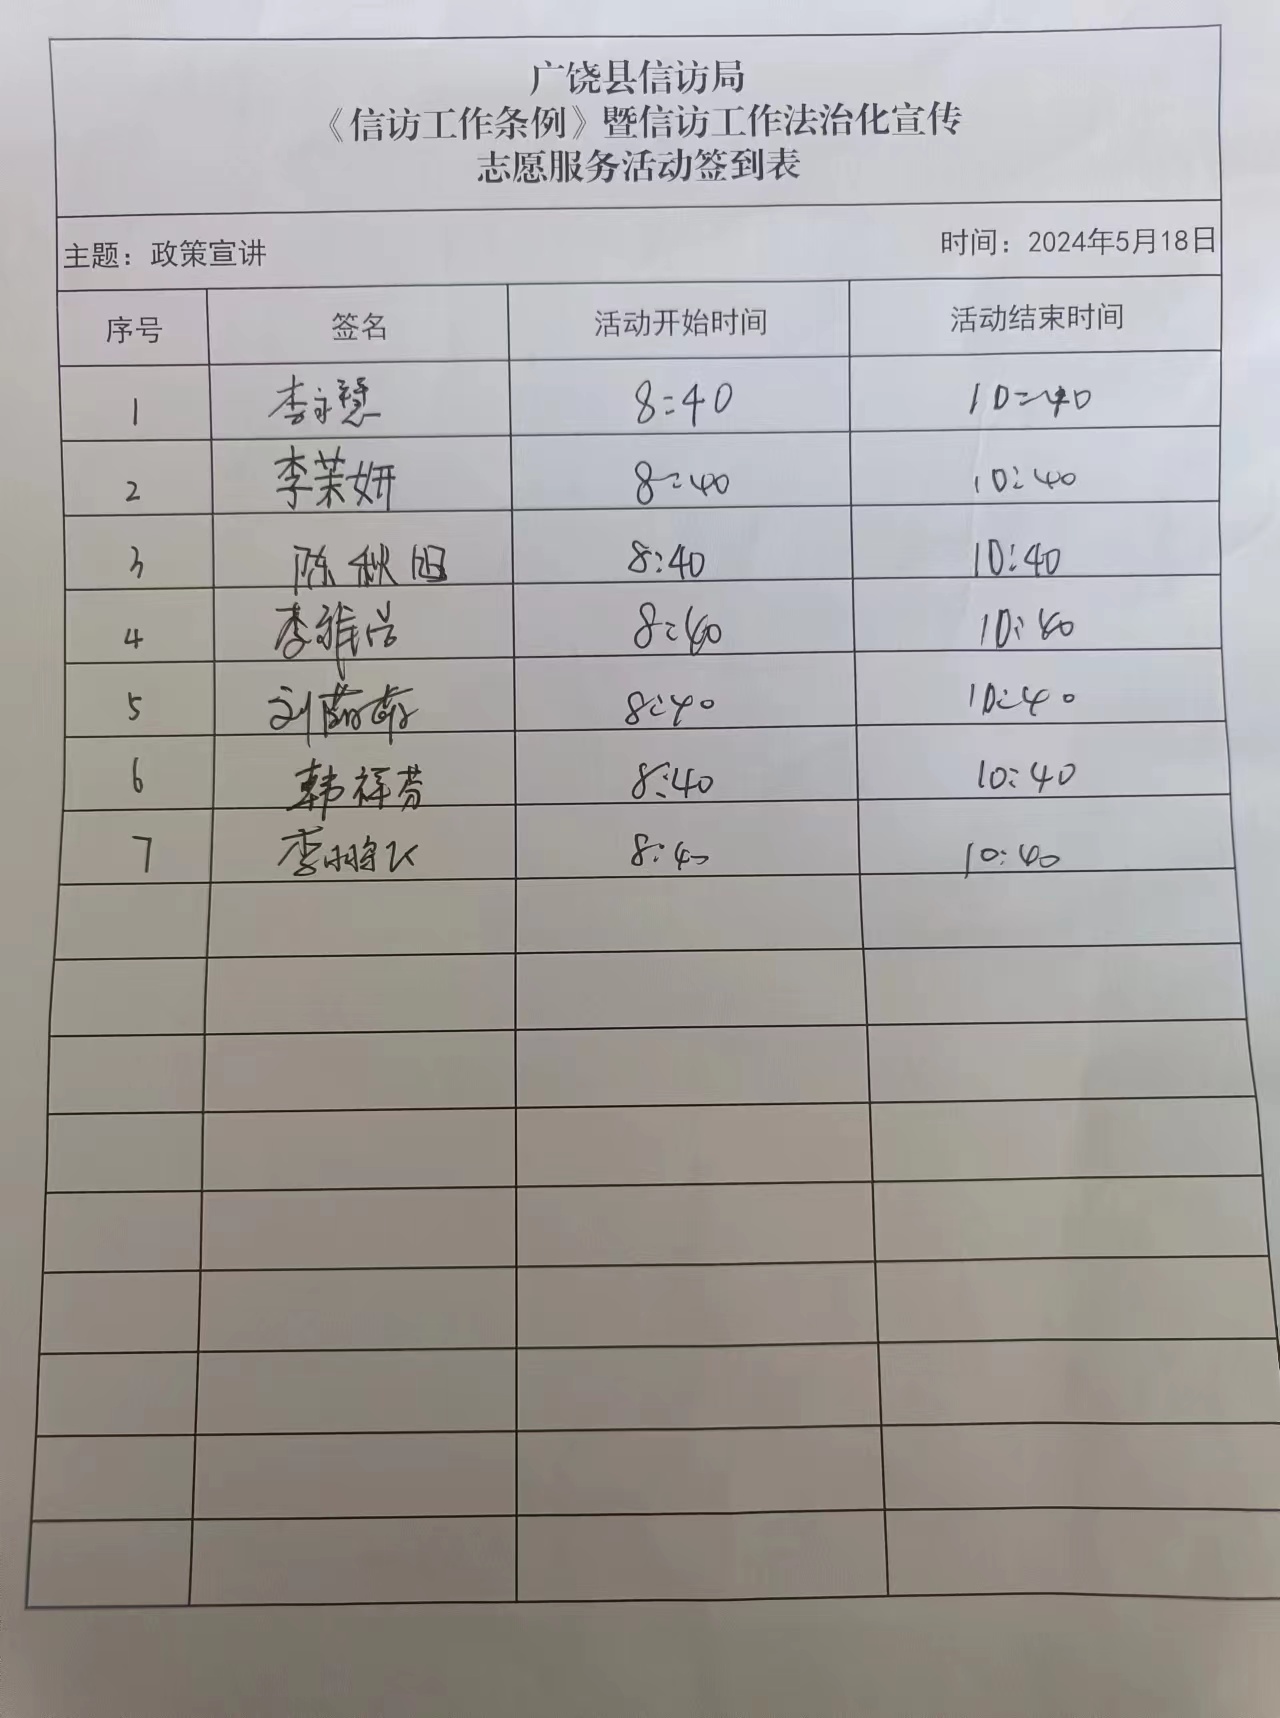 广饶县信访局
《信访工作条例》暨信访工作法治化宣传
志愿服务活动签到表
主题：政策宣讲 时间：2024年5月18日
序号 签名 活动开始时间 活动结束时间
1 李永慧 8:40 10:40
2 李茉妍 8:40 10:40
3 陈秋旭 8:40 10:40
4 李雅尚 8:40 10:40
5 刘 8:40 10:40
6 韩祥芬 8:40 10:40
7 李鹏飞 8:40 10:40